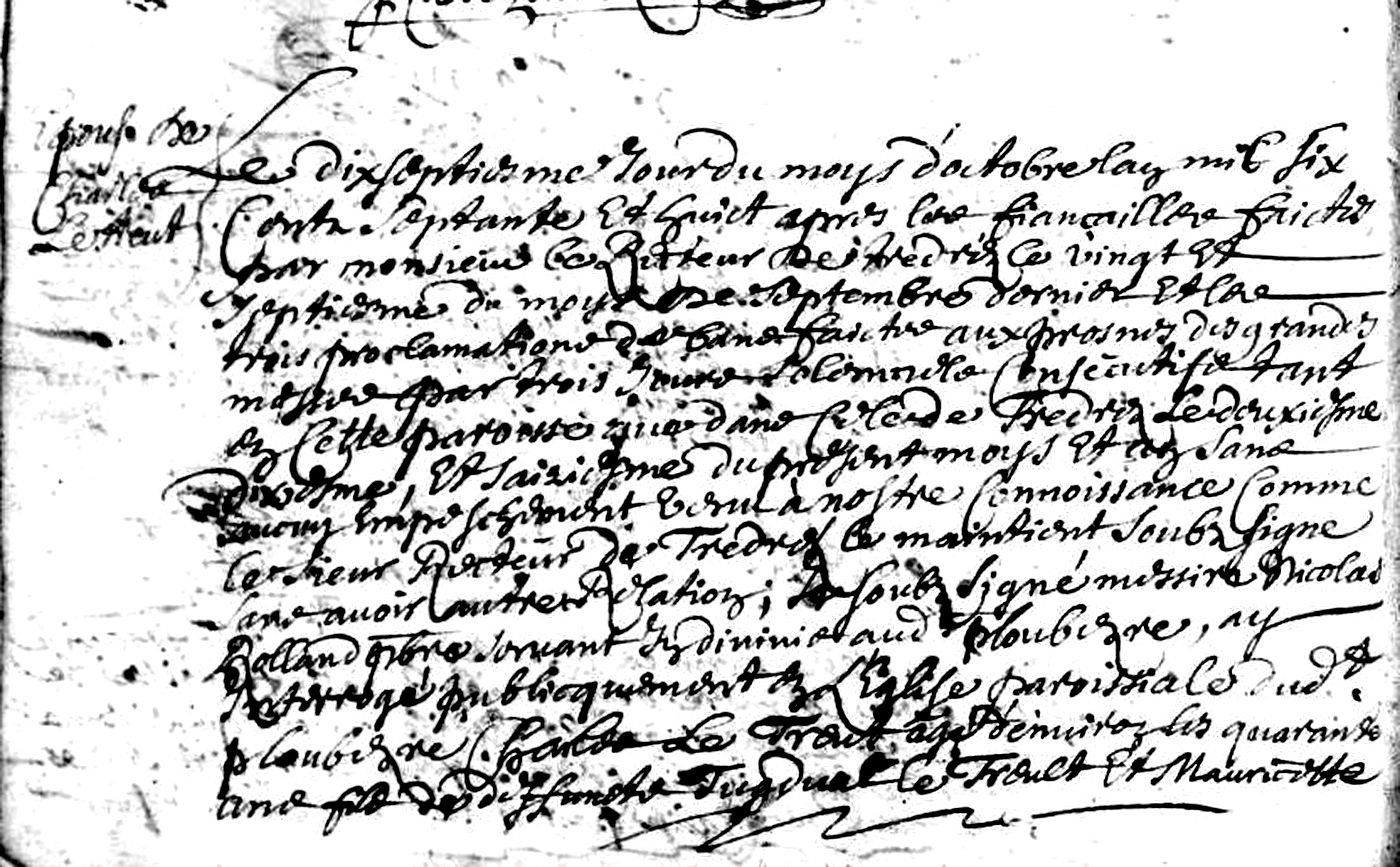 Espous de
Charles
Le Treut
Le dixseptiesme Jour du moys d'octobre lan mil six
Centz Septante Et huict apres les fiançailles faictes
par monsieur le Recteur de Tredrez le vingt Et
septiesme du moys de Septembre dernier Et les
trois proclamations de bans faictes aux prosnes des grandes
messes par trois Jours solemnels Consecutifs tant
en Cette paroisse que dans Celle de Tredrez Le deuxiesme
dixiesme, Et saiziesme du present moys Et an sans
aucun Empeschement venu à nostre Connoissance Comme
le sieur Recteur de Tredrez le maintient soubz signe
sans avoir autre Relation, Je soubz Signé messire Nicolas
Rolland pbre servant En divinis aud Ploubezre, ay
Interrogé publicquement en L'Eglise paroissiale dudt
ploubezre Charles Le Treut agé d'environ les quarante
ans fils de deffuncts Tugdual le Treult Et Mauricette